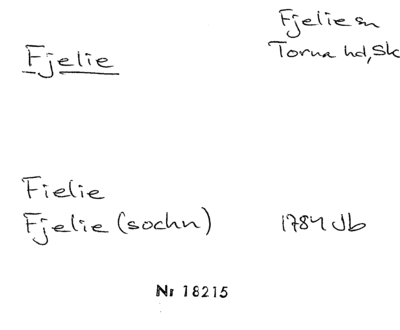 Fjelie sn
Fjelie
Torna hd, Sk
Fielie
Fjelie (sochn) 1784 Jb
Nr 18215